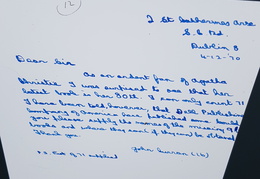 12
2 St Catherines Ave
S.C. Rd.
Dublin 8
4-12-70
Dear Sir
As an ardent fan of Agatha
Christie I was surprised to see that her
latest book is her 80th. I can only count 71
I have been told, however, that Dell Publishing
Company of America have published some
you please supply the names of the missing
books and where they can, if they can be obtained
Thank you
John Curran (16)